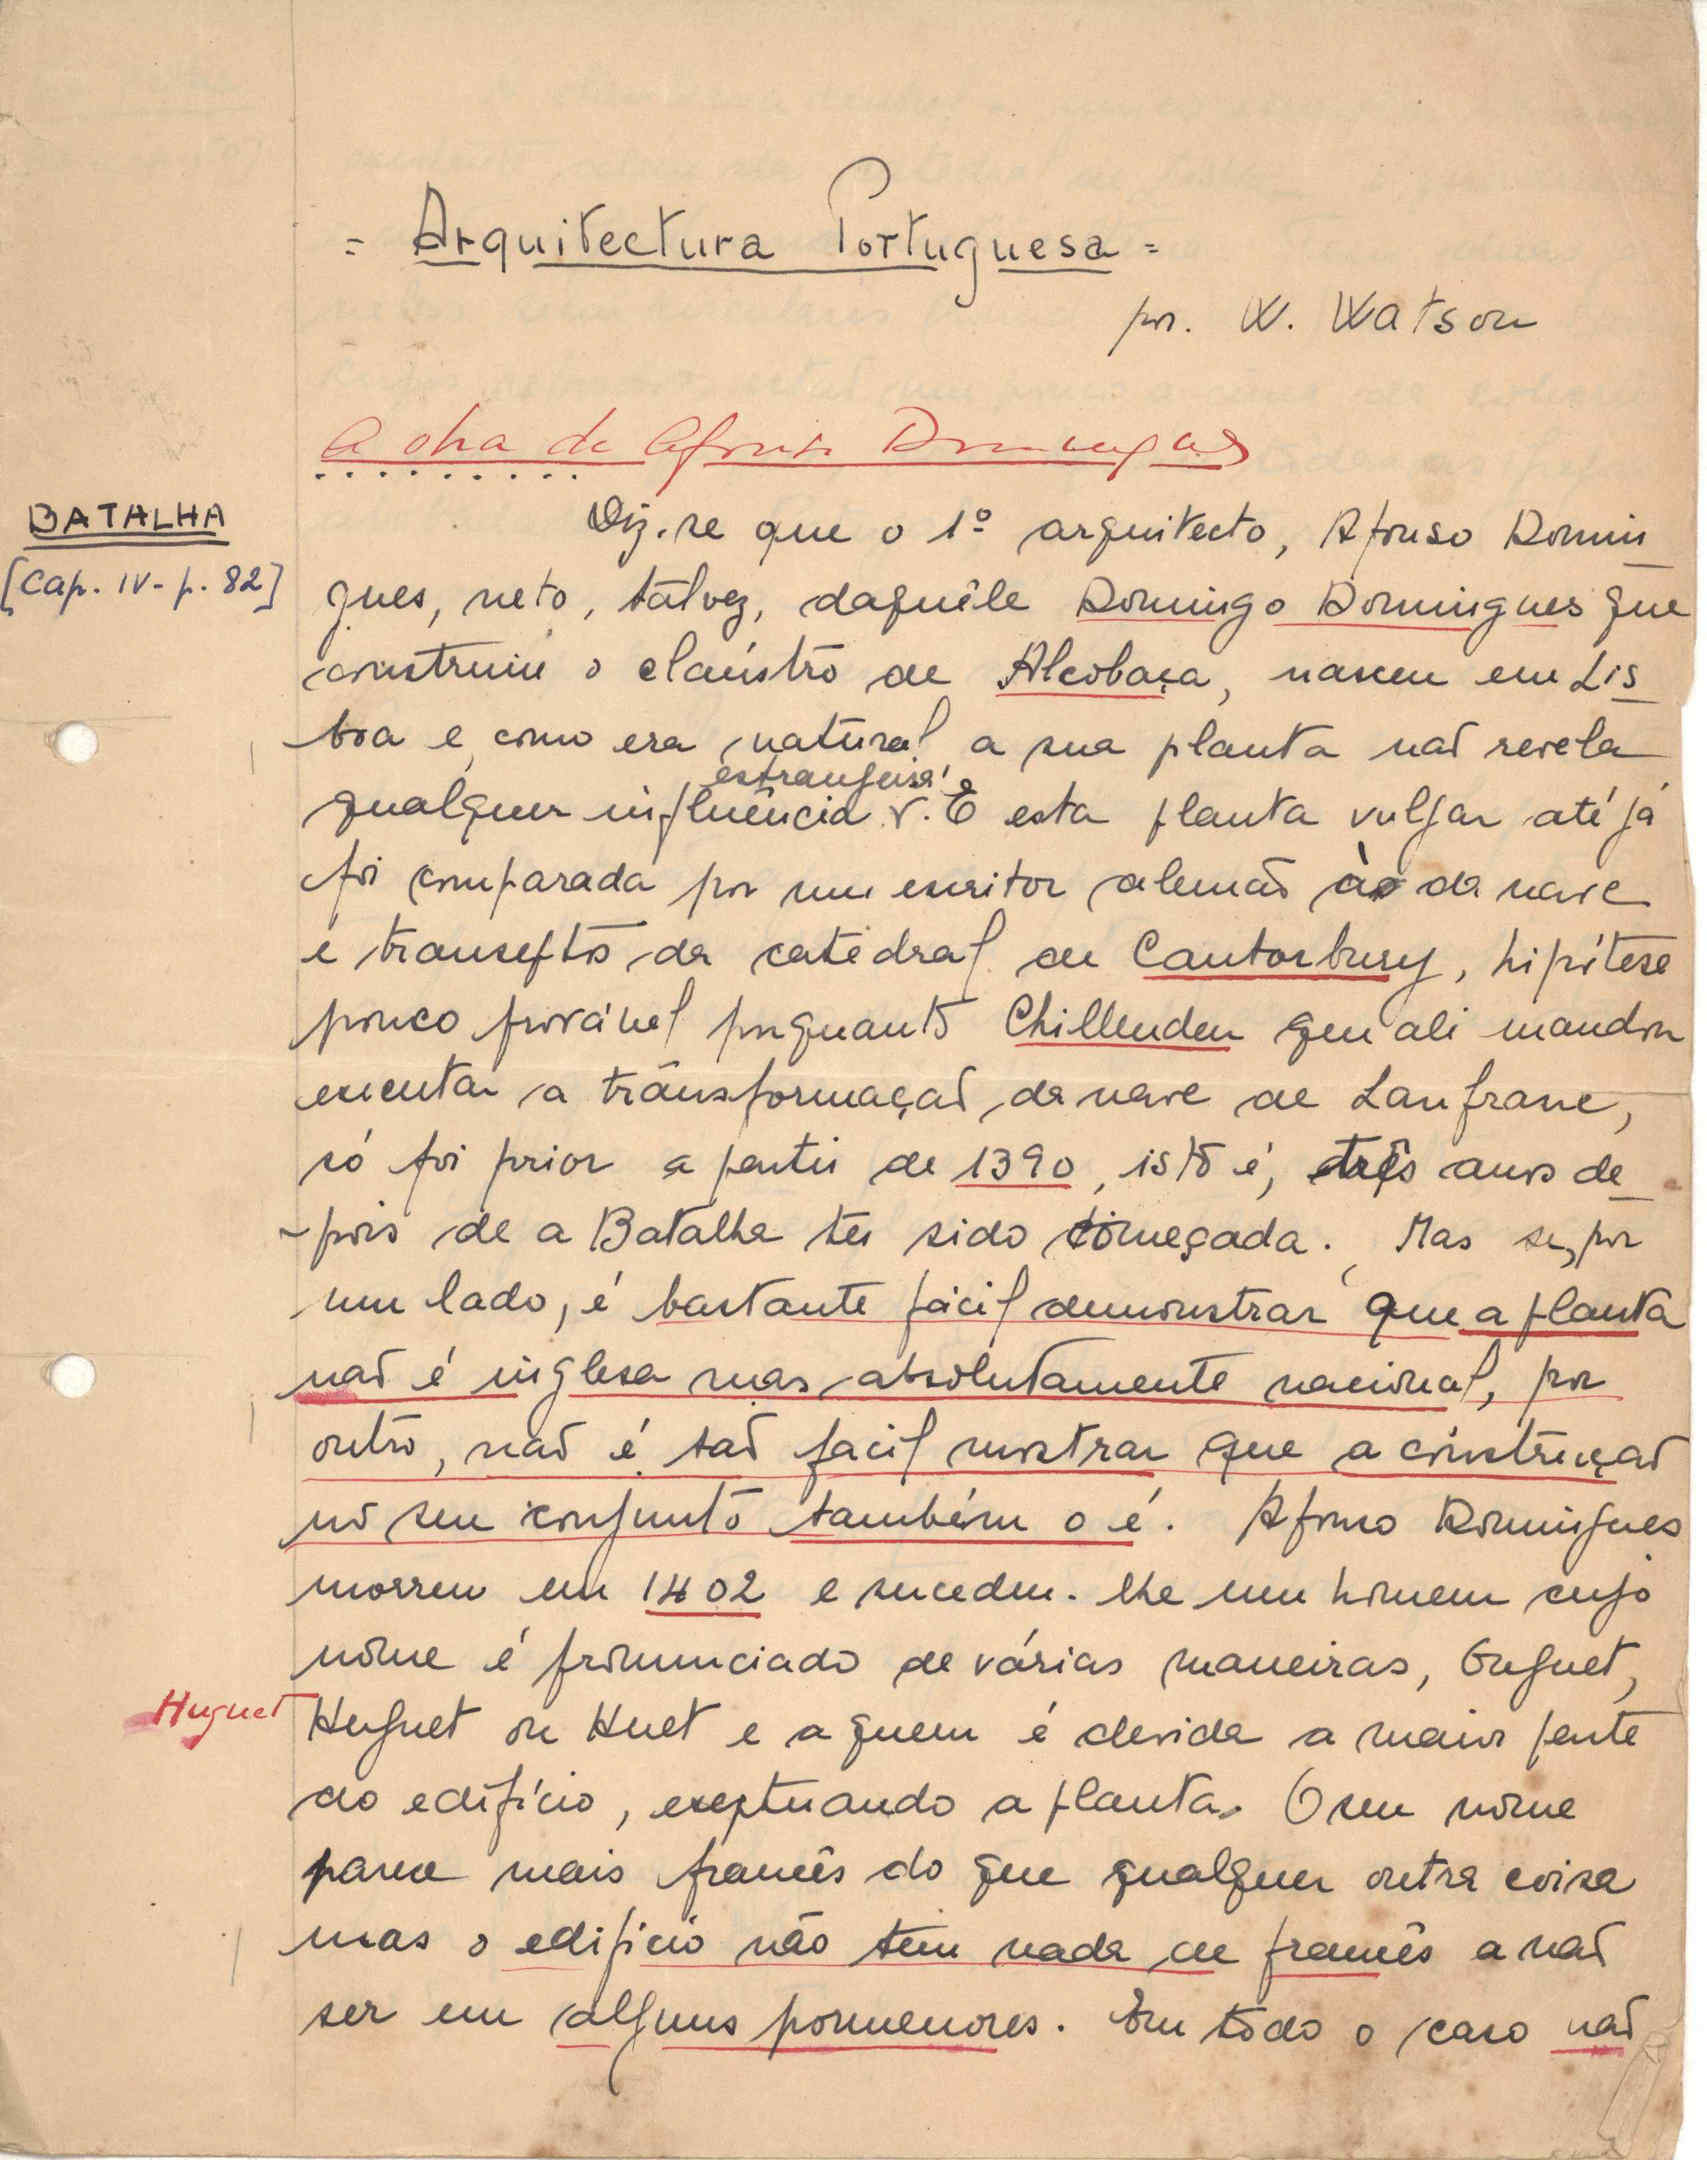 = Arquitectura Portuguesa =
por. W. Watson
A obra de Afonso Domingues
BATALHA
[Cap. IV - p. 82]
Diz-se que o 1º arquitecto, Afonso Domin
gues, neto, talvez, daquêle Domingo Domingues que
construiu o claústro de Alcobaça, nasceu em Lis
boa e, como era natural, a sua planta não revela
estrangeira
qualquer influência v. E esta planta vulgar até já
foi comparada por um escritor alemão à da nave
e transepto da catedral de Cantorbury, hipótese
pouco provável porquanto Chillenden que ali mandou
executar a transformação da nave de Lanfranc,
só foi prior a partir de 1390, isto é, três anos de
-pois de a Batalha ter sido começada. Mas se, por
um lado, é bastante fácil demonstrar que a planta
não é inglesa mas absolutamente nacional, por
outro, não é tão facil mostrar que a construção
no seu conjunto também o é. Afonso Domingues
morreu em 1402 e sucedeu-lhe um homem cujo
nome é pronunciado de várias maneiras, Ouguet,
Huguet
Huguet ou Huet e a quem é devida a maior parte
do edifício, exeptuando a planta. O seu nome
parece mais francês do que qualquer outra coisa
mas o edificio não tem nada de francês a não
ser em alguns pormenores. Em todo o caso não